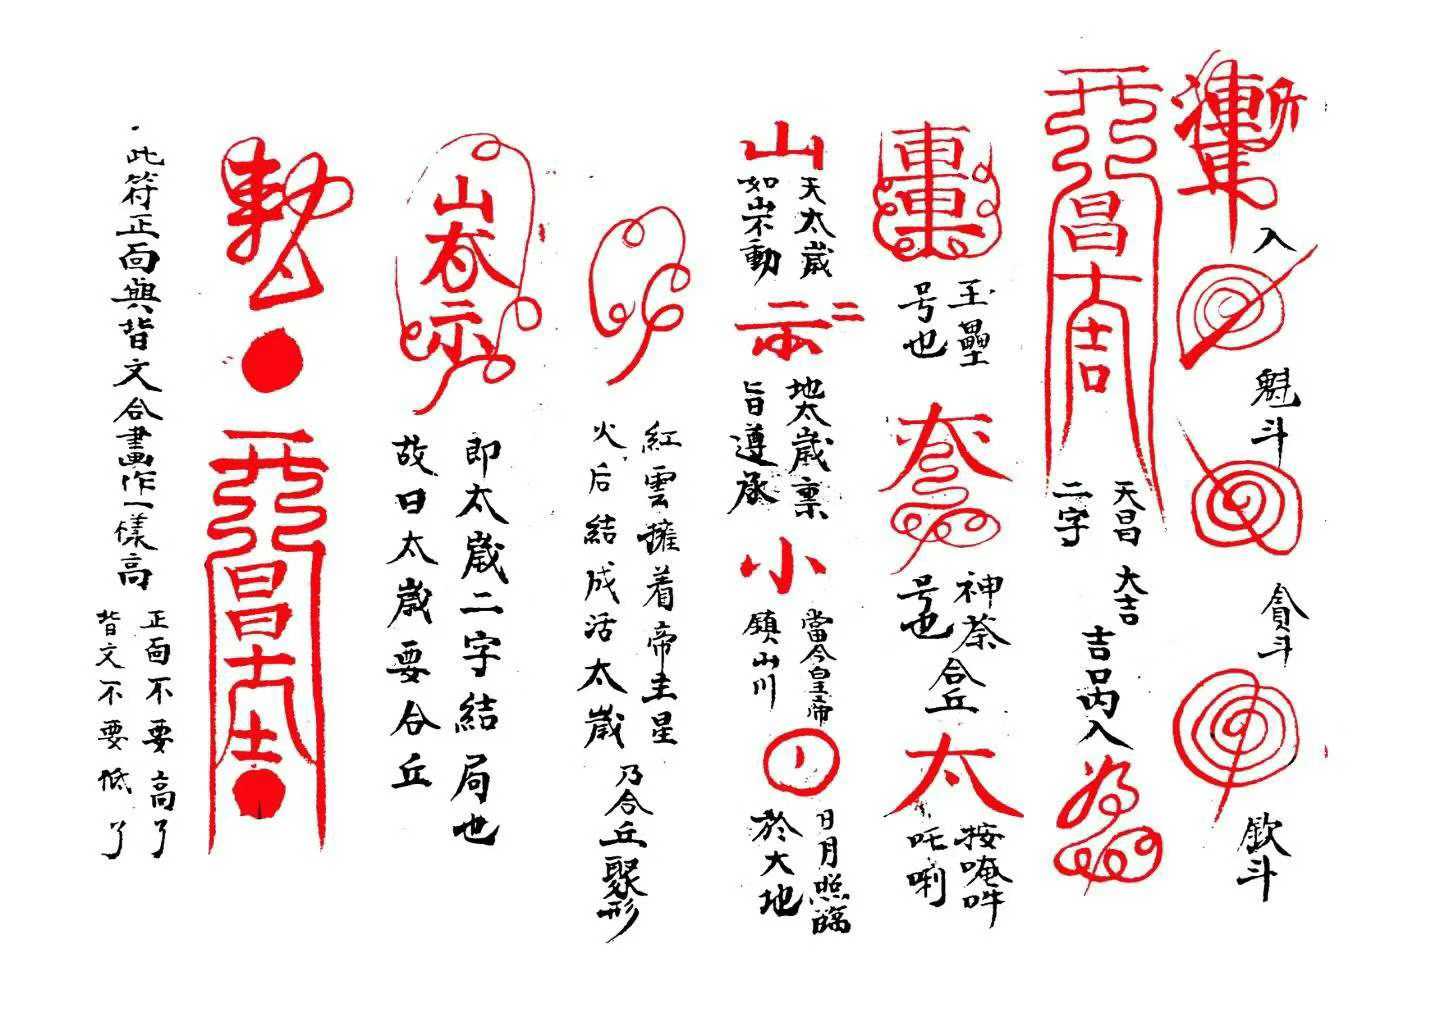 入
魁斗
貪斗
欽斗
天昌
二字
大吉
吉口內入
玉壘
号也
神荼
号也
合丘
太
按唵吽
吒唎
山
天太歲
如山不動
二
示
地太歲稟
旨遵承
小
當今皇帝
鎮山川
日月照臨
於大地
紅雲擁着帝圭星
火后結成活太歲
乃合丘聚形
即太歲二字結局也
故曰太歲要合丘
此符正面與背文合畫作一樣高
正面不要高了
背文不要低了